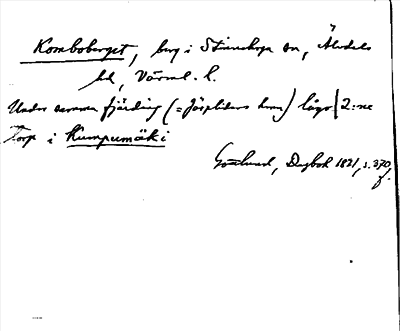 Komboberget, berg i Stänneberga sn, Älvdals
hd, Värml. l.
Under samma fjärding (= Järpliden hem) lågo 2:ne
Torp i Kumpumäki
Gottlund, Dagbok 1821, s. 370
f.